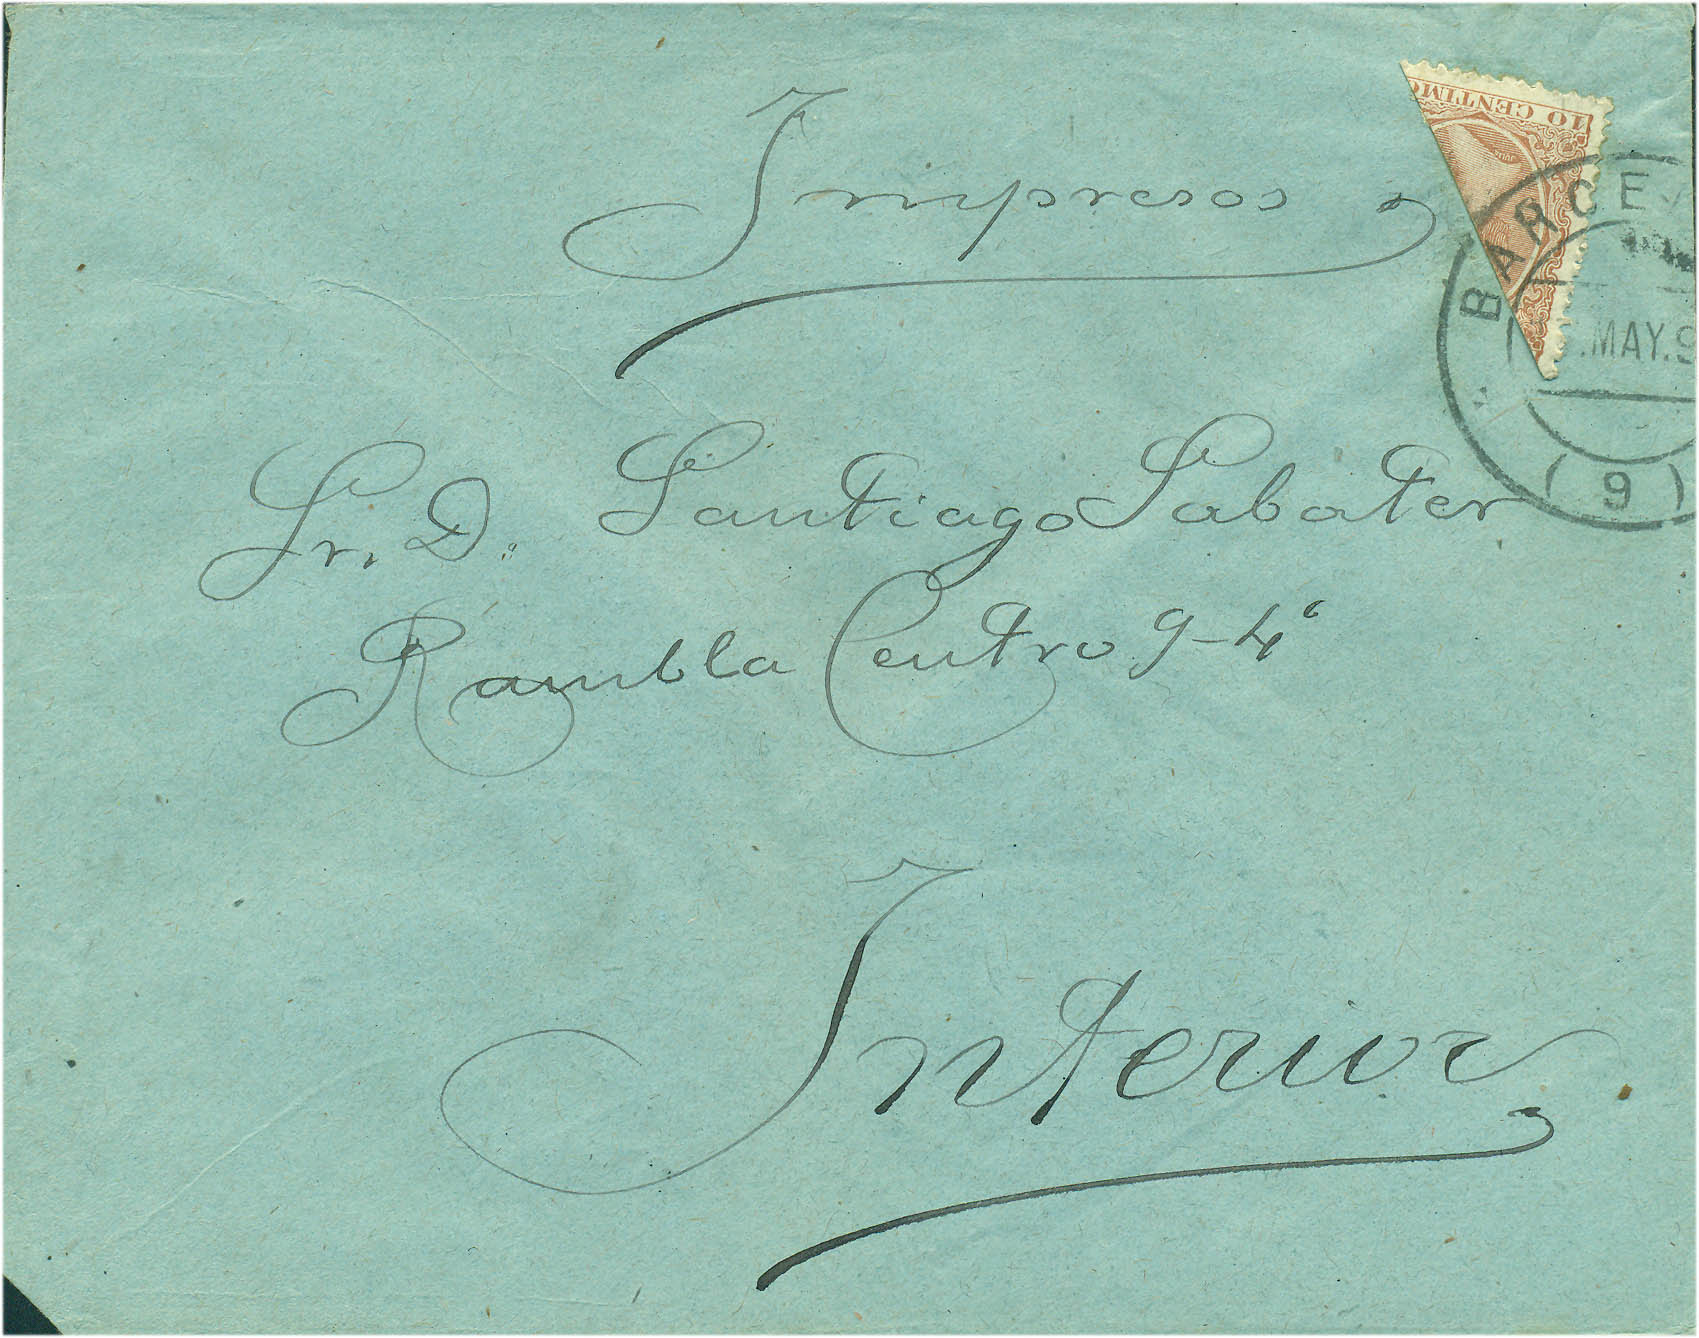 10 CENTIMO
Impresos
BARCE
MAY.9
(9)
Sr. D. Santiago Sabater
Rambla Centro 9-4º
Interior